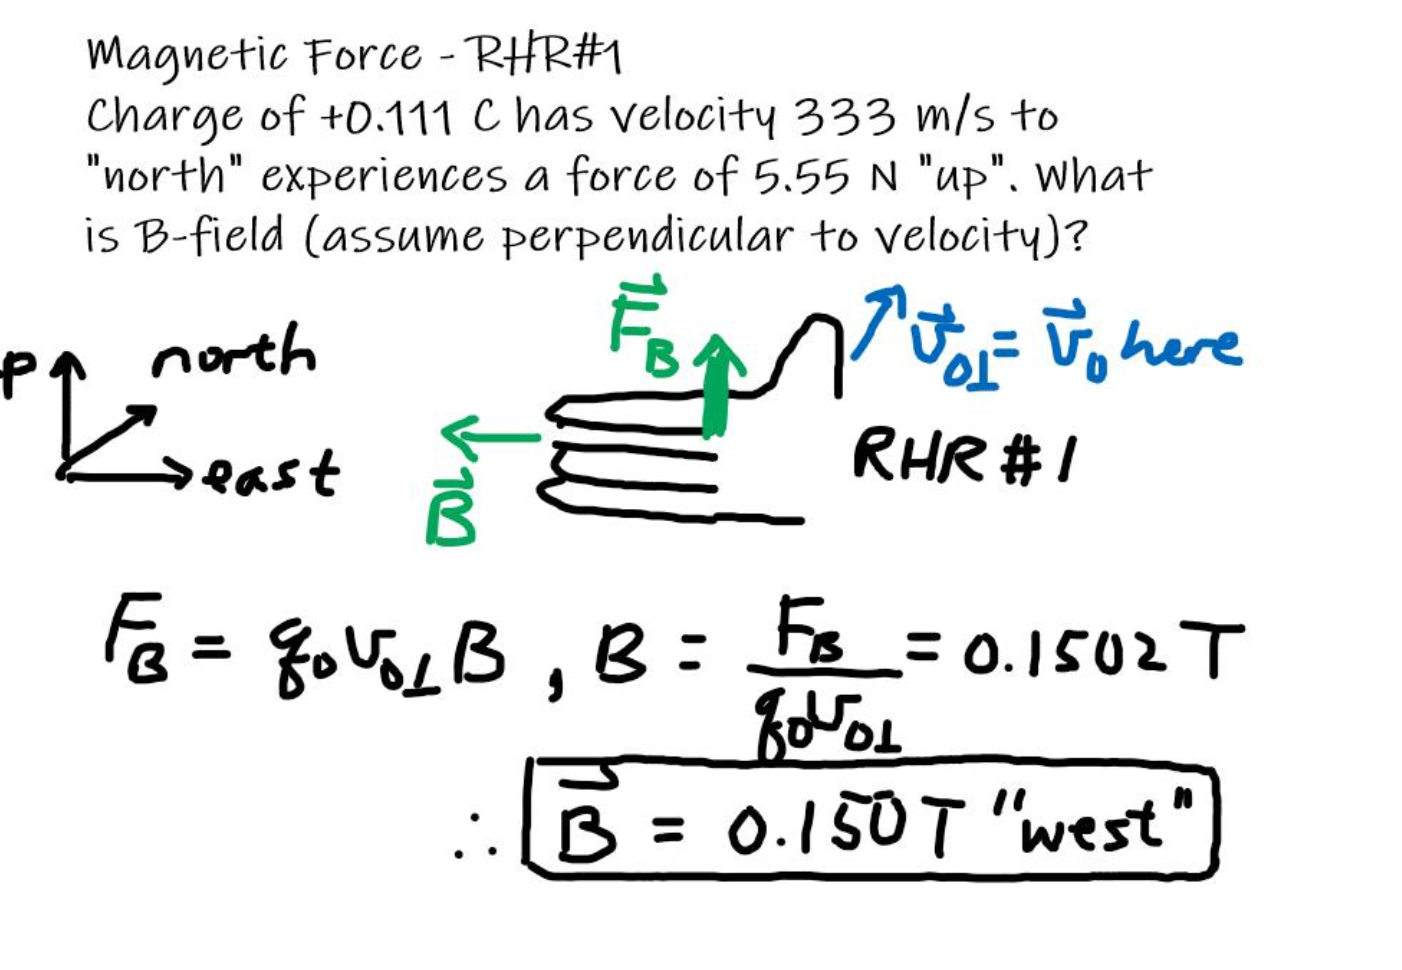 Magnetic Force - RHR#1
Charge of +0.111 C has velocity 333 m/s to
"north" experiences a force of 5.55 N "up". What
is B-field (assume perpendicular to velocity)?
F⃗_B v⃗_0⊥ = v⃗_0 here
p north
east B⃗ RHR #1
F_B = q_0 v_0⊥ B , B = F_B / q_0 v_0⊥ = 0.1502 T
∴ B⃗ = 0.15̅0̅ T "west"